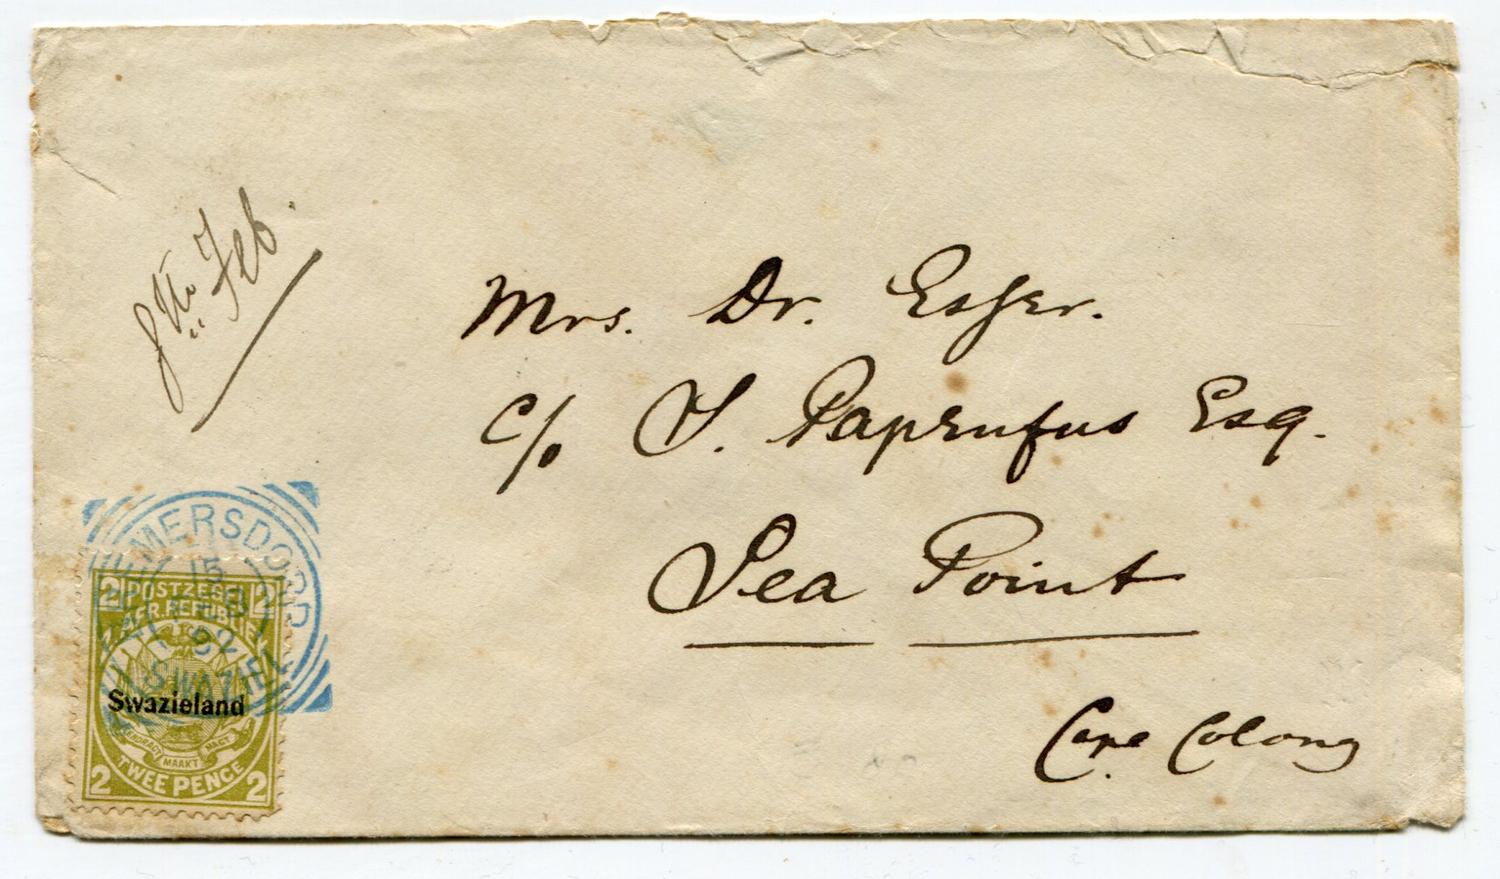 8th Feb.
Mrs. Dr. Esser.
c/o S. Paprenfus Esq.
Sea Point
Cape Colony
BREMERSDORP
15
FEB
92
SWAZIEL
2 POSTZEGEL 2
Z. AFR. REPUBLIEK
Swazieland
EENDRAGT MAAKT MAGT
2 TWEE PENCE 2